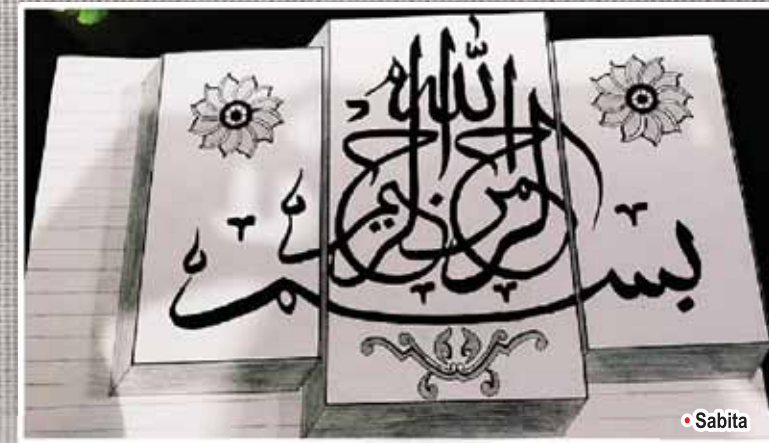 بسم الله الرحمن الرحيم
• Sabita